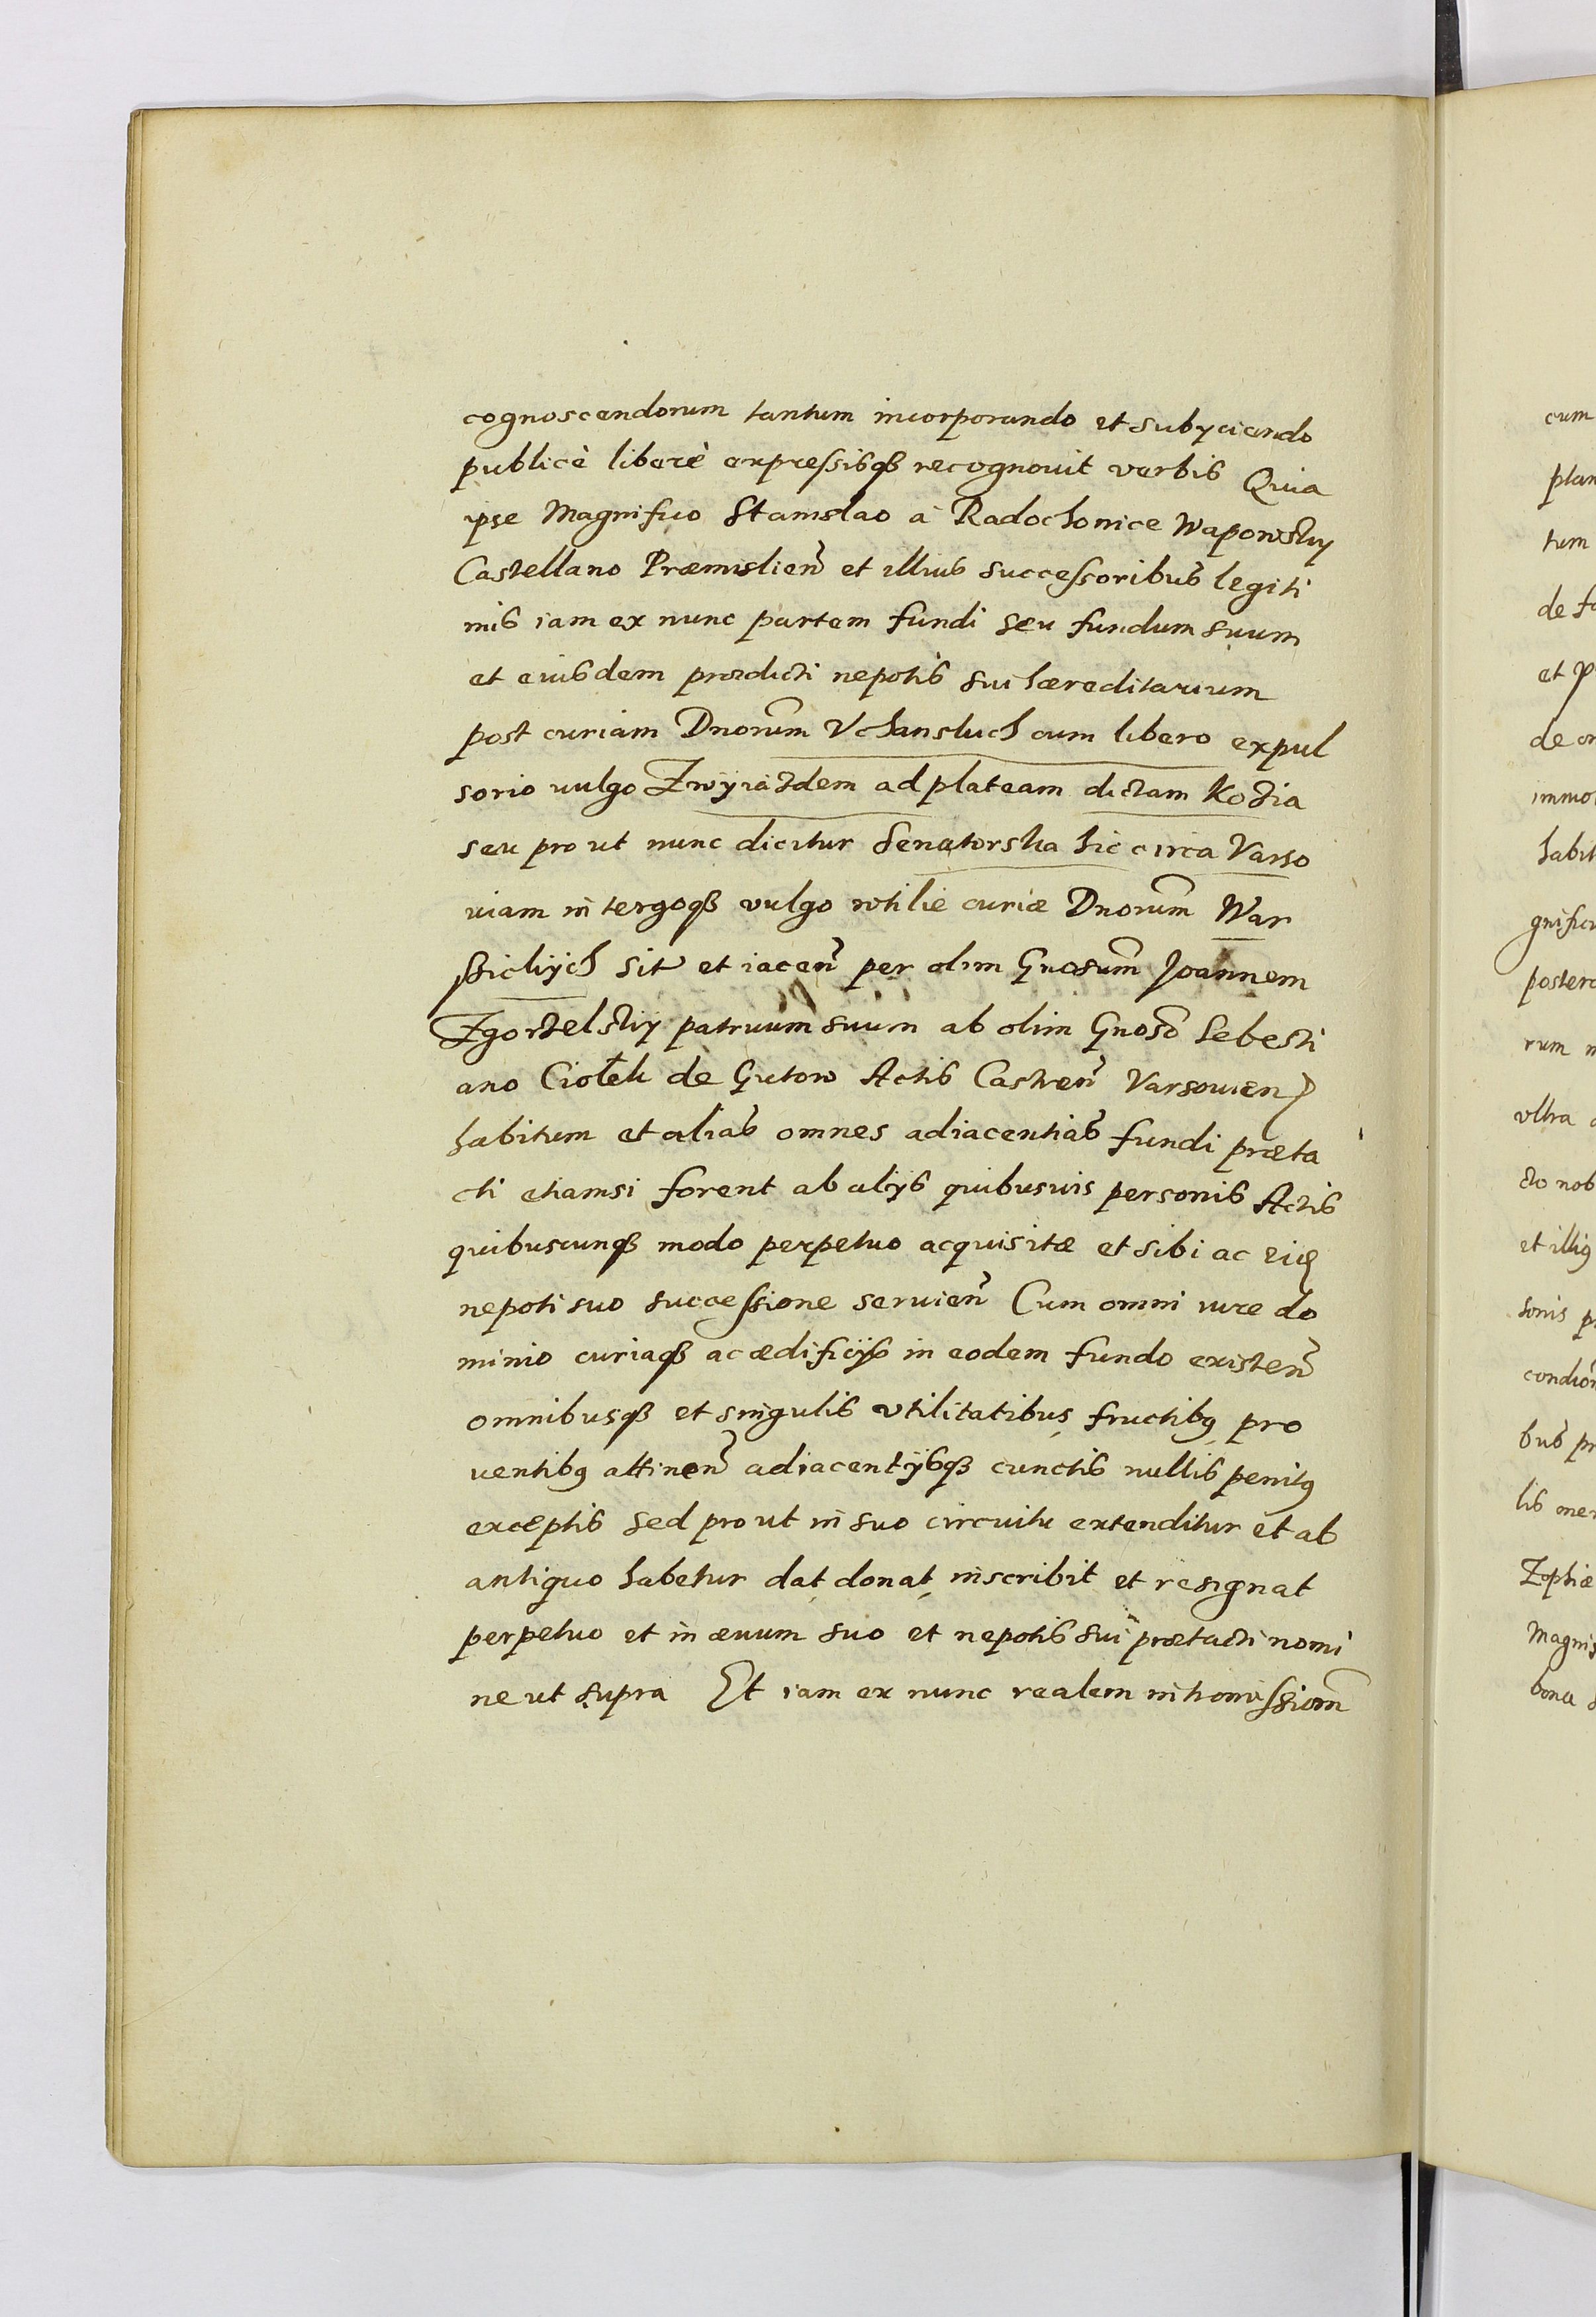 cognoscendorum tantum incorporando et subyciendo
publicè liberè expressisq3 recognouit verbis Quia
ipse Magnifico Stanislao à Radochonice Wapowsky
Castellano Præmislien̄ et illius successoribus legiti
mis iam ex nunc partem fundi seu fundum suum
et eiusdem prædicti nepotis sui hæreditarium
post curiam Dnorum̄ Vchanskich cum libero expul
sorio vulgo Zwyiazdem ad plateam dictam Kozia
seu pro ut nunc dicitur Senatorska hic circa Varso
uiam in tergoq3 vulgo wtilie curiæ Dnorum̄ War
ssickiych sit et iacen̄ per olim Gnosum̄ Joannem
Zgorzelsky patruum suum ab olim Gnoso Sebesti
ano Ciołek de Gutow Actis Castren̄ Varsouien
habitum et alias omnes adiacentias fundi præta
cti etiamsi forent ab alijs quibusuis personis Actis
quibuscunq3 modo perpetuo acquisitæ et sibi ac eid
nepoti suo successione seruien̄ Cum omni iure do
minio curiaq3 ac ædificijs in eodem fundo existen̄
omnibusq3 et singulis vtilitatibus fructibq pro
uentibq attinen̄ adiacentijsq3 cunctis nullis penitq
exceptis sed pro ut in suo circuitu extenditur et ab
antiquo habetur dat donat inscribit et resignat
perpetuo et in æuum suo et nepotis sui prætacti nomi
ne ut supra Et iam ex nunc realem intromissiom̄
cum
plan
tum
de fo
et p
de or
immo
habit
gnific
poster
rum
vltra
cto nob
et illiq
sonis p
condion
bus pr
lis one
Zophiæ
Magnis
bona